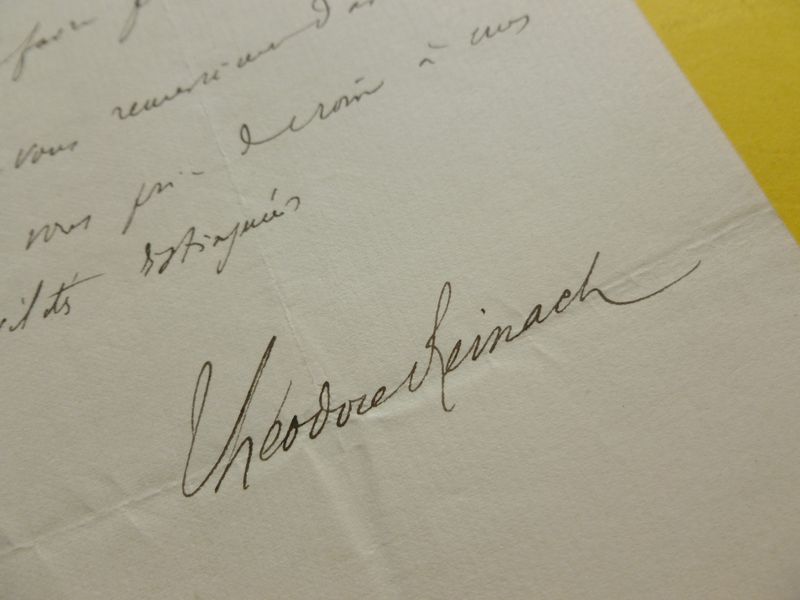 faire
vous remercier d'a
vous prie de croire à mes
civilités distinguées
Théodore Reinach